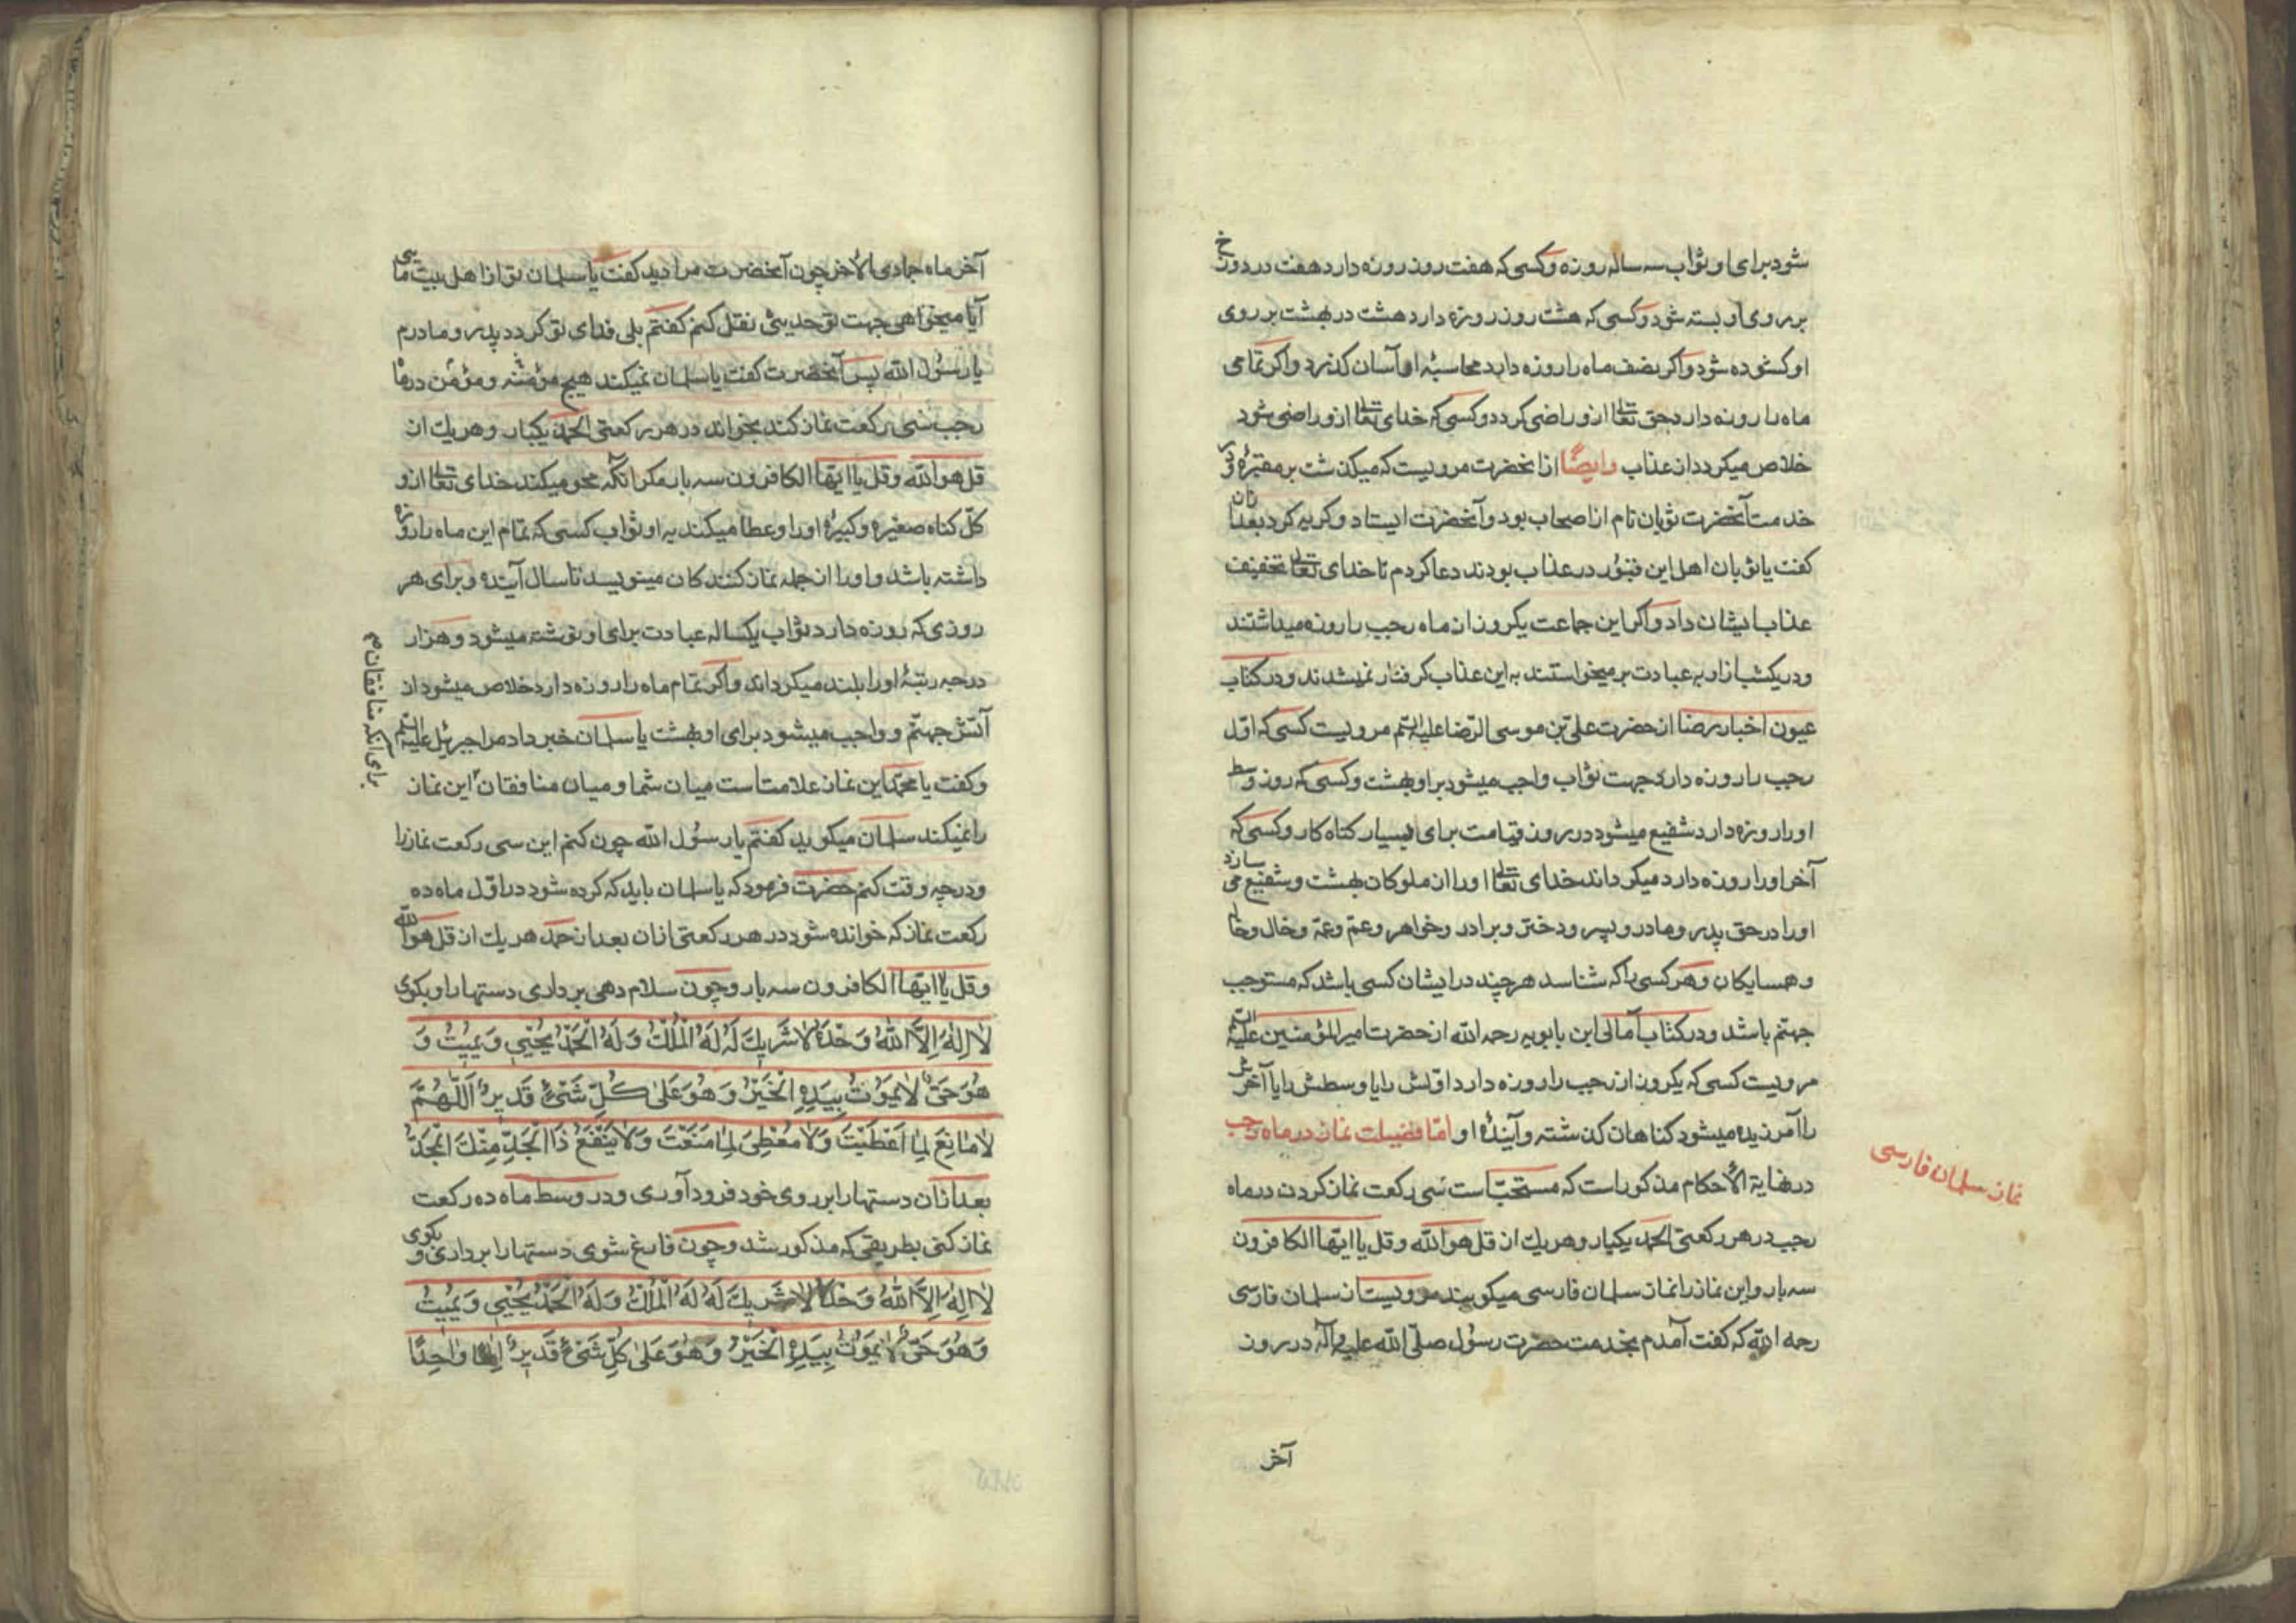 شود برای او ثواب سه ساله روزه وکسی که هفت روز روزه دارد هفت در دوزخ
بر روی او بسته شود وکسی که هشت روز روزه دارد هشت در بهشت بر روی
او کشوده شود واکر نصف ماه را روزه دارد محاسبۀ او آسان کذرد واکر تمامی
ماه را روزه دارد حق تعالی ازو راضی کردد وکسی که خدای تعالی ازو راضی شود
خلاص میکردد از عذاب وایضًا از انحضرت مرویست که میکذشت بر مقبرۀ ودر
خدمت آنحضرت ثوبان نام از اصحاب بود وآنحضرت ایستاد وکریه کرد بعد ازان
کفت یا ثوبان اهل این قبور در عذاب بودند دعا کردم تا خدای تعالی تخفیف
عذاب ایشان داد واکر این جماعت یکروز از ماه رجب را روزه میداشتند
ودر یکشب ازاو به عبادت بر میخواستند به این عذاب کرفتار نمیشدند ودر کتاب
عیون اخبار رضا از حضرت علی بن موسی الرضا علیه السلم مرویست کسی که اول
رجب را روزه دارد جهت ثواب واجب میشود بر او بهشت وکسی که روز وسط
اورا روزه دارد شفیع میشود در روز قیامت برای بسیار کناه کار وکسی که
آخر اورا روزه دارد میکرداند خدای تعالی اورا از ملوکان بهشت وشفیع می سازد
اورا در حق پدر ومادر وپسر ودختر وبرادر وخواهر وعم وعمه وخال وخاله
وهمسایکان وهر کسی را که شناسد هر چند در ایشان کسی باشد که مستوجب
جهنم باشد ودر کتاب آمالی ابن بابویه رحمه الله از حضرت امیر المؤمنین علیه السلم
مرویست کسی که یکروز از رجب را روزه دارد اولش را یا وسطش را یا آخرش
را آمرزیده میشود کناهان کذشته وآیندۀ او امّا فضیلت نماز در ماه رجب
در نهایة الأحکام مذکور است که مستحبّ است سی رکعت نماز کردن در ماه
رجب در هر رکعتی الحمد یکبار وهر یك از قل هو الله وقل یا ایها الکافرون
سه بار واین نماز را نماز سلمان فارسی میکویند مرویست از سلمان فارسی
رحمه الله که کفت آمدم بخدمت حضرت رسول صلّی الله علیه وآله در روز
نماز سلمان فارسی
آخر
آخر ماه جمادی الآخر چون آنحضرت مرا دید کفت یا سلمان تو از اهل بیت مایی
آیا میخواهی جهت تو حدیثی نقل کنم کفتم بلی فدای تو کردد پدر ومادرم
یا رسول الله پس آنحضرت کفت یا سلمان نمیکند هیچ مؤمنه ومؤمن در ماه
رجب سی رکعت نماز کند بخواند در هر رکعتی الحمد یکبار وهر یك از
قل هو الله وقل یا ایها الکافرون سه بار مکر آنکه محو میکند خدای تعالی ازو
کلّ کناه صغیره وکبیرۀ اورا وعطا میکند به او ثواب کسی که تمام این ماه را روزه
داشته باشد واورا از جمله نماز کنندکان مینویسد تا سال آینده وبرای هر
روزی که روزه دارد ثواب یکساله عبادت برای او نوشته میشود وهزار
درجه رتبۀ اورا بلند میکرداند واکر تمام ماه را روزه دارد خلاص میشود از
آتش جهنّم وواجب میشود برای او بهشت یا سلمان خبر داد مرا جبرئیل علیه السلم
وکفت یا محمد این نماز علامت است میان شما ومیان منافقان این نماز
را نمیکند سلمان میکوید کفتم یا رسول الله چون کنم این سی رکعت نماز را
ودر چه وقت کنم حضرت فرمود که یا سلمان باید که کرده شود در اوّل ماه ده
رکعت نماز که خوانده شود در هر رکعتی ازان بعد از حمد هر یك از قل هو الله
وقل یا ایها الکافرون سه بار وچون سلام دهی برداری دستها را وبکوی
لَا اِلٰهَ اِلَّا اللّٰهُ وَحْدَهُ لَا شَرِیكَ لَهُ لَهُ الْمُلْكُ وَلَهُ الْحَمْدُ یُحْیِی وَیُمِیتُ وَ
هُوَ حَیٌّ لَا یَمُوتُ بِیَدِهِ الْخَیْرُ وَهُوَ عَلٰی کُلِّ شَیْءٍ قَدِیرٌ اَللّٰهُمَّ
لَا مَانِعَ لِمَا اَعْطَیْتَ وَلَا مُعْطِیَ لِمَا مَنَعْتَ وَلَا یَنْفَعُ ذَا الْجَدِّ مِنْكَ الْجَدُّ
بعد ازان دستها را بر روی خود فرود آوری ودر وسط ماه ده رکعت
نماز کنی بطریقی که مذکور شد وچون فارغ شوی دستها را برداری وبکوی
لَا اِلٰهَ اِلَّا اللّٰهُ وَحْدَهُ لَا شَرِیكَ لَهُ لَهُ الْمُلْكُ وَلَهُ الْحَمْدُ یُحْیِی وَیُمِیتُ
وَهُوَ حَیٌّ لَا یَمُوتُ بِیَدِهِ الْخَیْرُ وَهُوَ عَلٰی کُلِّ شَیْءٍ قَدِیرٌ اِلٰهًا وَاحِدًا
برای آنکه منافقان م